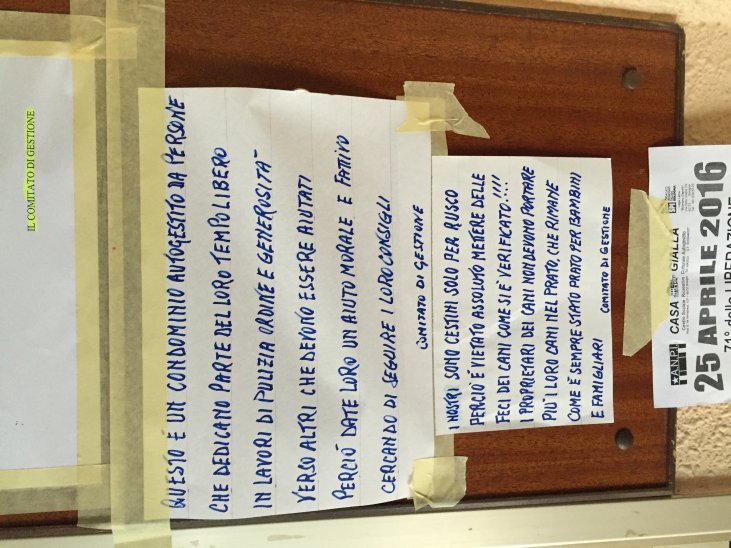 IL COMITATO DI GESTIONE
QUESTO È UN CONDOMINIO AUTOGESTITO DA PERSONE
CHE DEDICANO PARTE DEL LORO TEMPO LIBERO
IN LAVORI DI PULIZIA ORDINE E GENEROSITÀ
VERSO ALTRI CHE DEVONO ESSERE AIUTATI
PERCIÒ DATE LORO UN AIUTO MORALE E FATTIVO
CERCANDO DI SEGUIRE I LORO CONSIGLI
COMITATO DI GESTIONE
I NOSTRI SONO CESTINI SOLO PER RUSCO
PERCIÒ È VIETATO ASSOLUTO METTERE DELLE
FECI DEI CANI COME SI È VERIFICATO.!!!!
I PROPRIETARI DEI CANI NON DEVONO PORTARE
PIÙ I LORO CANI NEL PRATO, CHE RIMANE
COME È SEMPRE STATO PRATO PER BAMBINI
E FAMIGLIARI
COMITATO DI GESTIONE
A.N.P.I. CASA GIALLA
25 APRILE 2016
71° della LIBERAZIONE